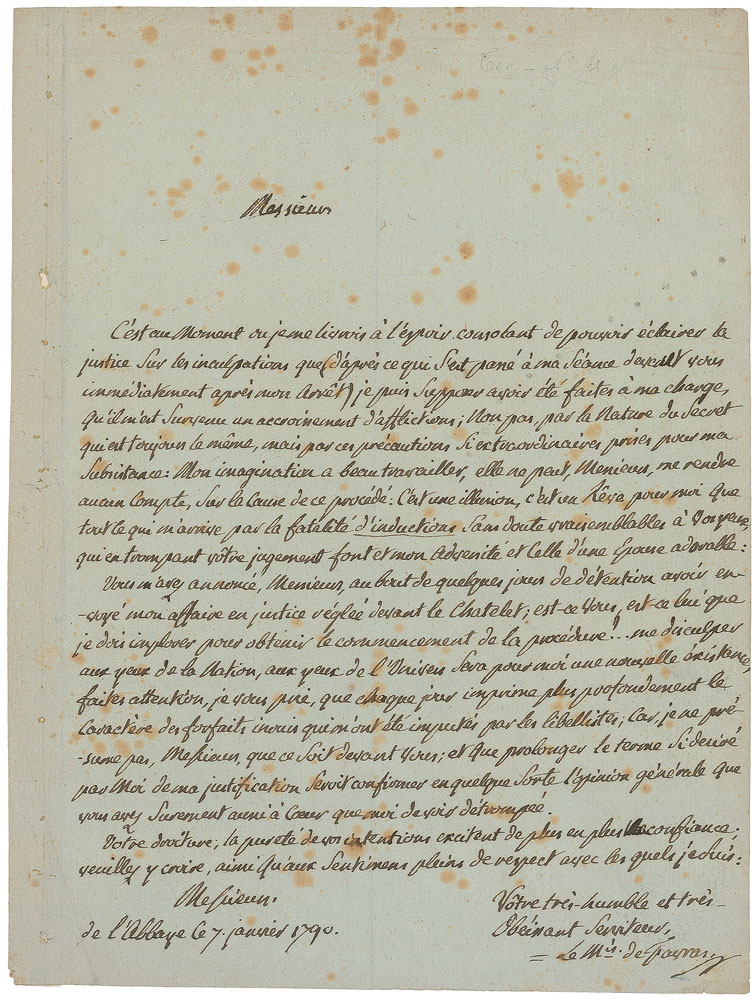 Messieurs
C'est au Moment ou je me livrois à l'espoir consolant de pouvoir éclairer la
justice Sur les inculpations que (d'après ce qui S'est passé à ma Séance devant vous
immédiatement après mon Arrêt) je puis Supposer avoir été faites à ma charge,
Qu'il m'est Survenu un accroissement d'afflictions; Non pas, par la Nature du Secret
qui est toujours le même, mais par ces précautions Si extraordinaires prises pour ma
Subsistance: Mon imagination a beau travailler, elle ne peut, Messieurs, me rendre
aucun Compte, Sur la Cause de ce procédé: C'est une illusion, c'est un Rêve pour moi Que
tout ce qui m'arrive par la fatalité d'inductions Sans doute vraisemblables à Vos yeux,
qui en trompant vôtre jugement font et mon Adversité et Celle d'une Epouse adorable:
Vous m'avez annoncé, Messieurs, au bout de quelques jours de détention avoir en-
-voyé mon affaire en justice réglée devant le Chatelet; est-ce Vous, est-ce lui que
je dois implorer pour obtenir le commencement de la procédure!.. me disculper
aux yeux de la Nation, aux yeux de l'Univers Sera pour moi une nouvelle éxistance,
faites attention, je vous prie, que chaque jour imprime plus profondement le
Caractère des forfaits inouis qui m'ont été imputés par les libellistes; Car, je ne pré-
-sume pas, Messieurs, que ce Soit devant Vous; et Que prolonger le terme Si desiré
par Moi de ma justification Seroit confirmer en quelque Sorte l'opinion générale que
vous avez Surement aussi à Coeur que moi de voir détrompée.
Vôtre droiture, la pureté de vos intentions excitent de plus en plus confiance;
veuillez y croire, ainsi Qu'aux Sentimens pleins de respect avec les quels je Suis:
Messieurs.
Vôtre très-humble et très-
Obéissant Serviteur,
de l'Abbaye le 7. janvier 1790.
= Le Mis. de favras